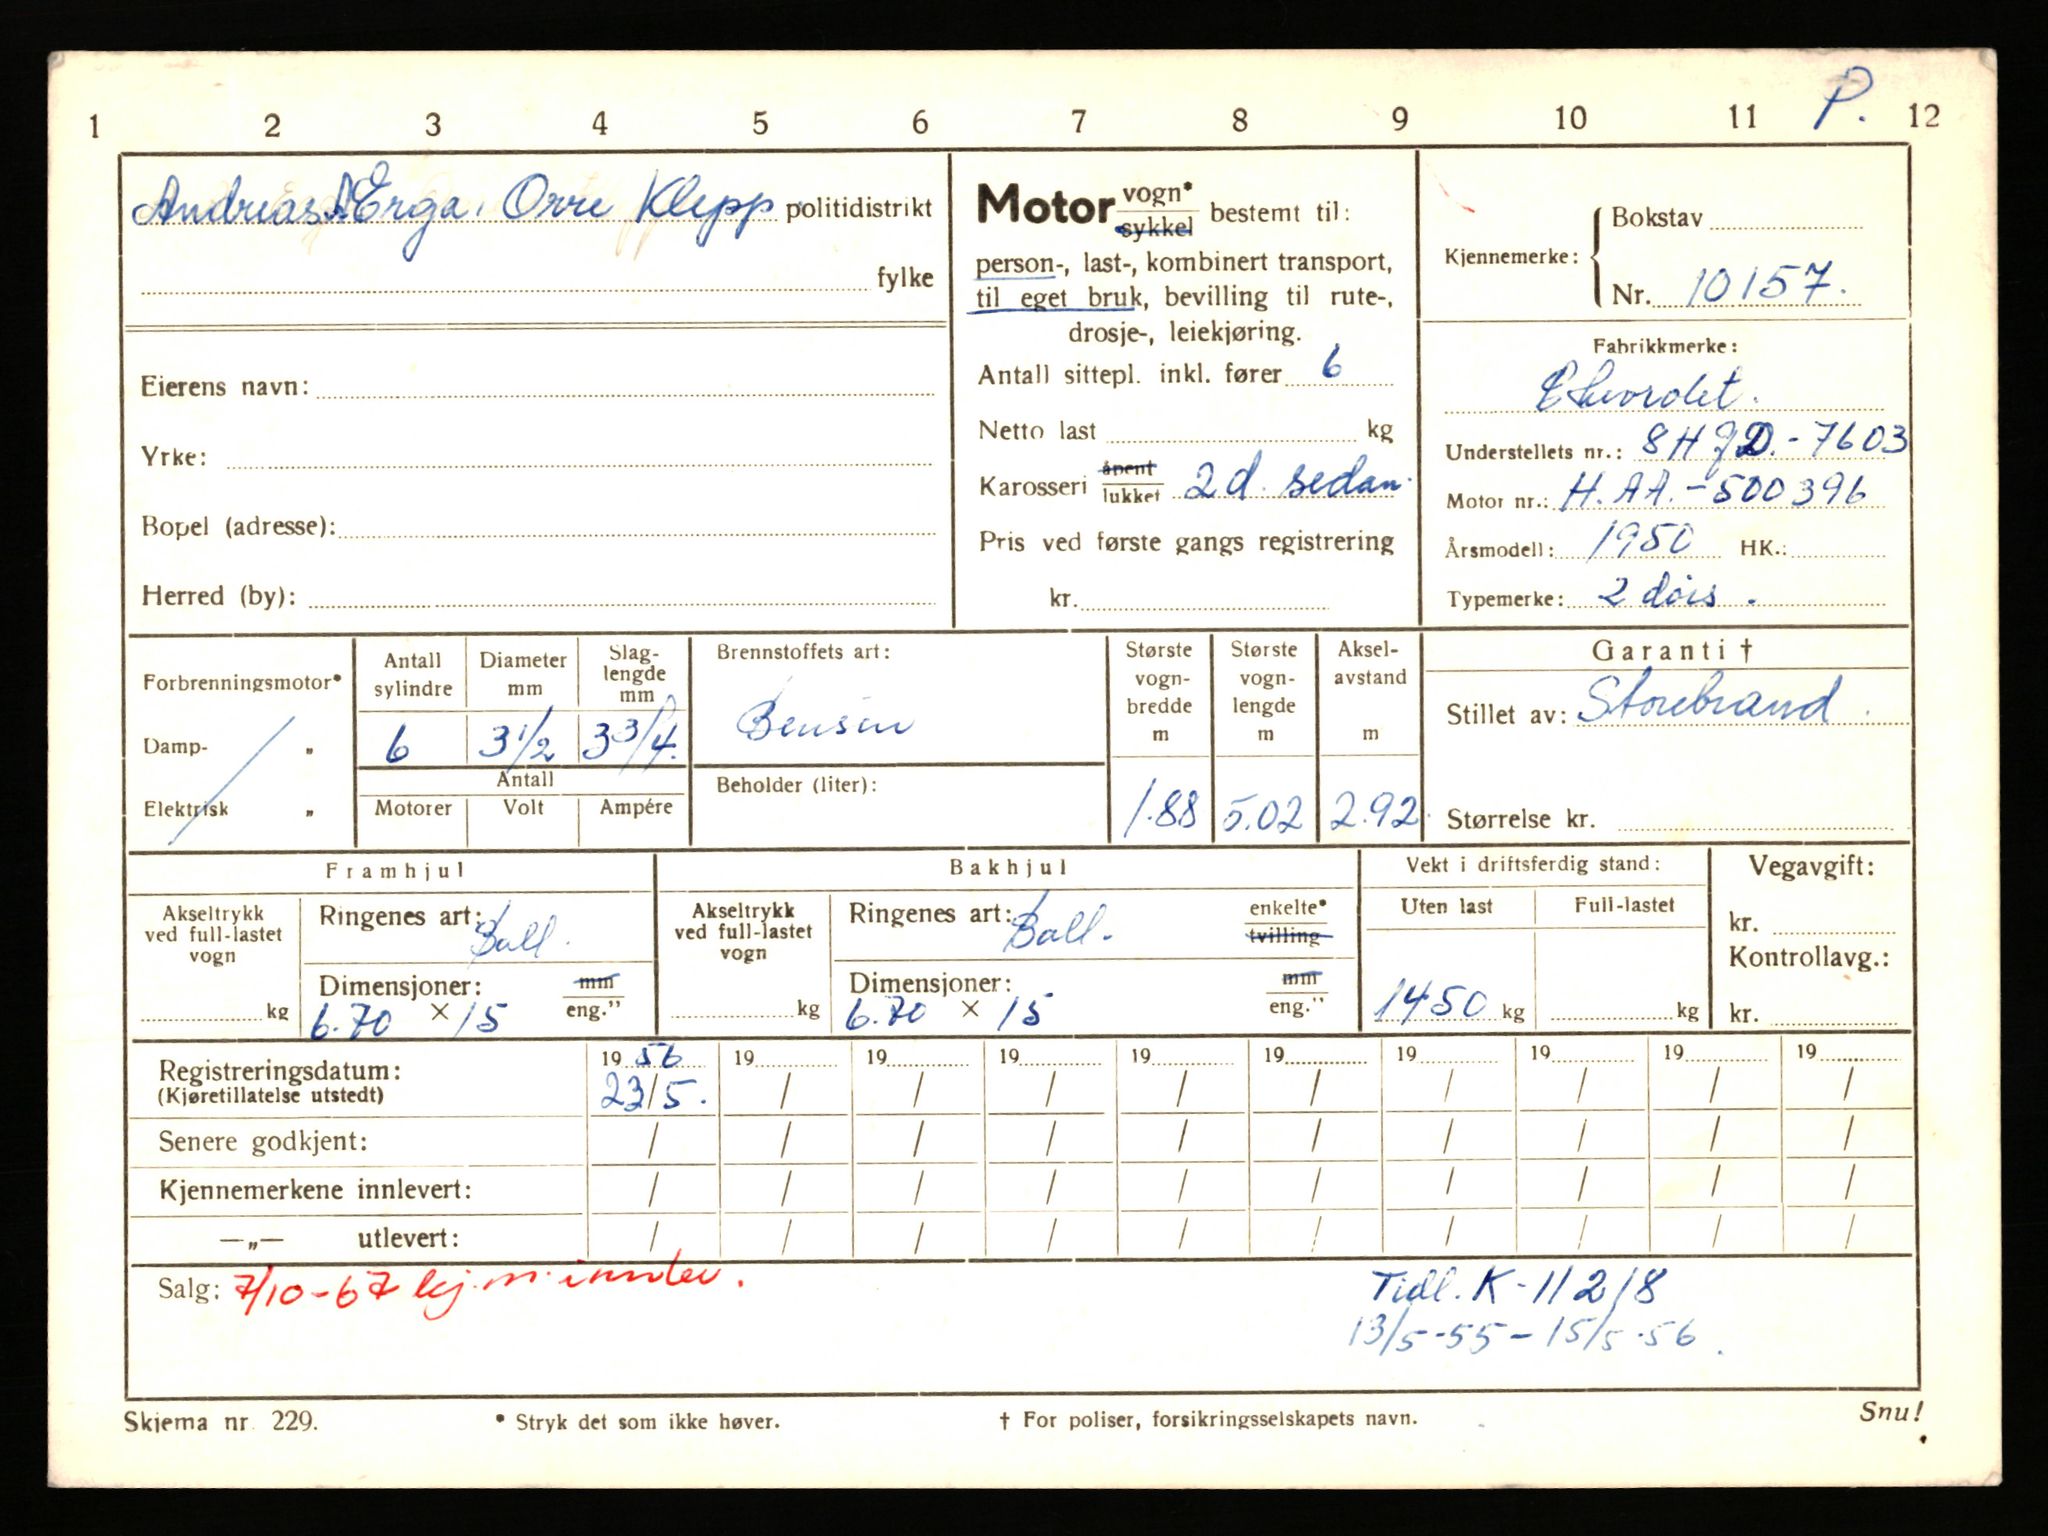 P.
1 2 3 4 5 6 7 8 9 10 11 12
Andreas A Erga. Orre Klepp politidistrikt
fylke
Eierens navn:
Yrke:
Bopel (adresse):
Herred (by):
Motor vogn* / sykkel bestemt til:
person-, last-, kombinert transport,
til eget bruk, bevilling til rute-,
drosje-, leiekjøring.
Antall sittepl. inkl. fører 6
Netto last kg
Karosseri åpent / lukket 2 d. sedan.
Pris ved første gangs registrering
kr.
Kjennemerke: Bokstav
Nr. 10157.
Fabrikkmerke:
Chevrolet.
Understellets nr.: 8 H J D. - 7603
Motor nr.: H.A A. - 500396
Årsmodell: 1950 HK.:
Typemerke: 2 dørs.
Forbrenningsmotor*
Damp- „
Elektrisk „
Antall sylindre
6
Diameter mm
3 1/2
Slaglengde mm
3 3/4.
Antall
Motorer Volt Ampére
Brennstoffets art:
Bensin
Beholder (liter):
Største vognbredde m
1.88
Største vognlengde m
5.02
Akselavstand m
2.92
Garanti †
Stillet av: Storebrand.
Størrelse kr.
Framhjul
Akseltrykk ved full-lastet vogn
kg
Ringenes art: Ball.
Dimensjoner: mm / eng."
6.70 × 15
Bakhjul
Akseltrykk ved full-lastet vogn
kg
Ringenes art: Ball. enkelte* / tvilling
Dimensjoner: mm / eng."
6.70 × 15
Vekt i driftsferdig stand:
Uten last Full-lastet
1450 kg kg
Vegavgift:
kr.
Kontrollavg.:
kr.
Registreringsdatum: 19 56 19 19 19 19 19 19 19 19 19
(Kjøretillatelse utstedt) 23/5. / / / / / / / / /
Senere godkjent: / / / / / / / / / /
Kjennemerkene innlevert: / / / / / / / / / /
—„— utlevert: / / / / / / / / / /
Salg: 7/10-67 kj.m. innlev.
Tidl. K-11218
13/5-55 - 15/5-56.
Skjema nr. 229.
* Stryk det som ikke høver.
† For poliser, forsikringsselskapets navn.
Snu!